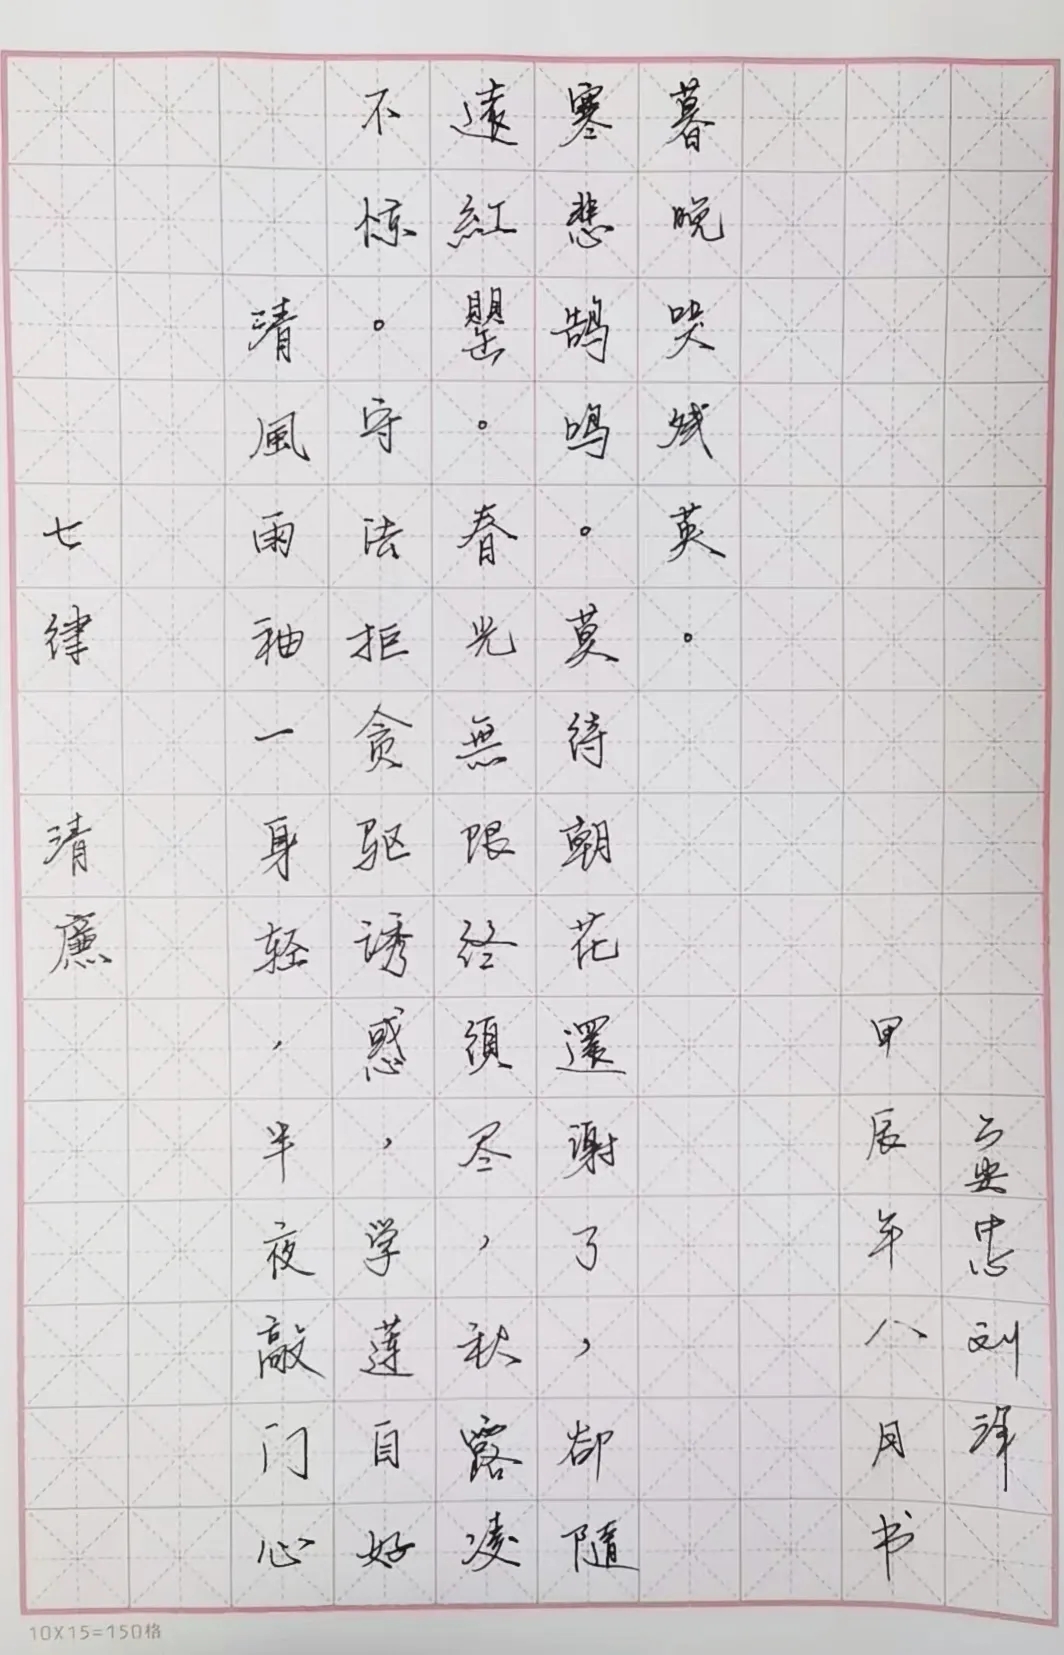 七律 清廉
清風雨袖一身轻，半夜敲门心
不惊。守法拒贪驱诱惑，学莲自好
遠紅罌。春光無限终須尽，秋露凌
寒悲鹄鸣。莫待朝花還謝了，却隨
暮晚哭残英。
甲辰年八月书
安忠刘